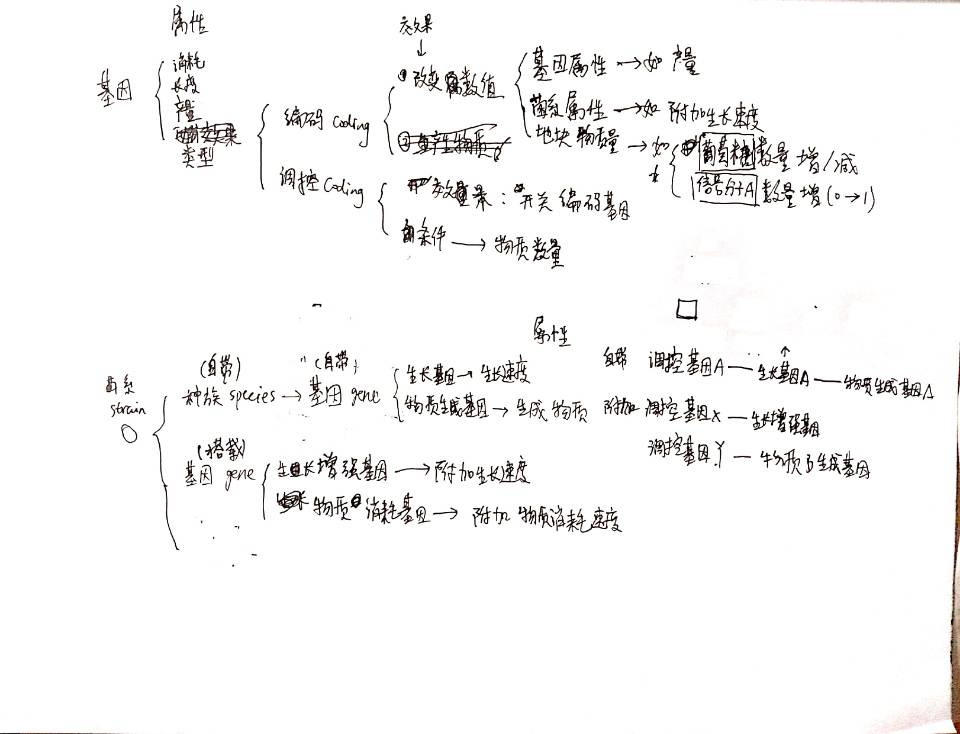 属性
效果
基因
消耗
长度
产量
类型
编码 coding
调控 coding
① 改变属数值
基因属性 → 如 产量
菌系属性 → 如 附加生长速度
地块物质量 → 如
葡萄糖 数量 增/减
信号分子A 数量增 (0→1)
效果: 开关编码基因
条件 → 物质数量
属性
菌系
strain
(自带)
种族 species → 基因 gene
(自带)
生长基因 → 生长速度
物质生成基因 → 生成物质
(搭载)
基因 gene
生长增强基因 → 附加生长速度
物质 消耗基因 → 附加 物质消耗速度
自带 调控基因A — 生长基因A — 物质生成基因A
附加 调控基因X — 生长增强基因
调控基因Y — 物质B生成基因